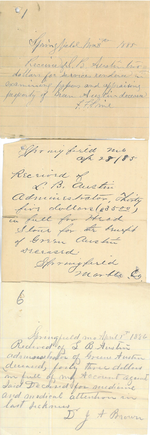 Springfield Mo
Received of L. B. Austin two
dollars for services rendered in
examining papers and
property of Green Austin deceased
Springfield Mo
Received of
L. B. Austin
Administrator, Thirty
two dollars
in full for Head
Stone for the benefit
of Green Austin
deceased
Springfield
Marble Co
6
Springfield Mo
Received of L B Austin
administrator of Green Austin
deceased, forty three dollars
in full of
said Deceased for medicine
and medical attention in
last sickness
D. J. A Brown